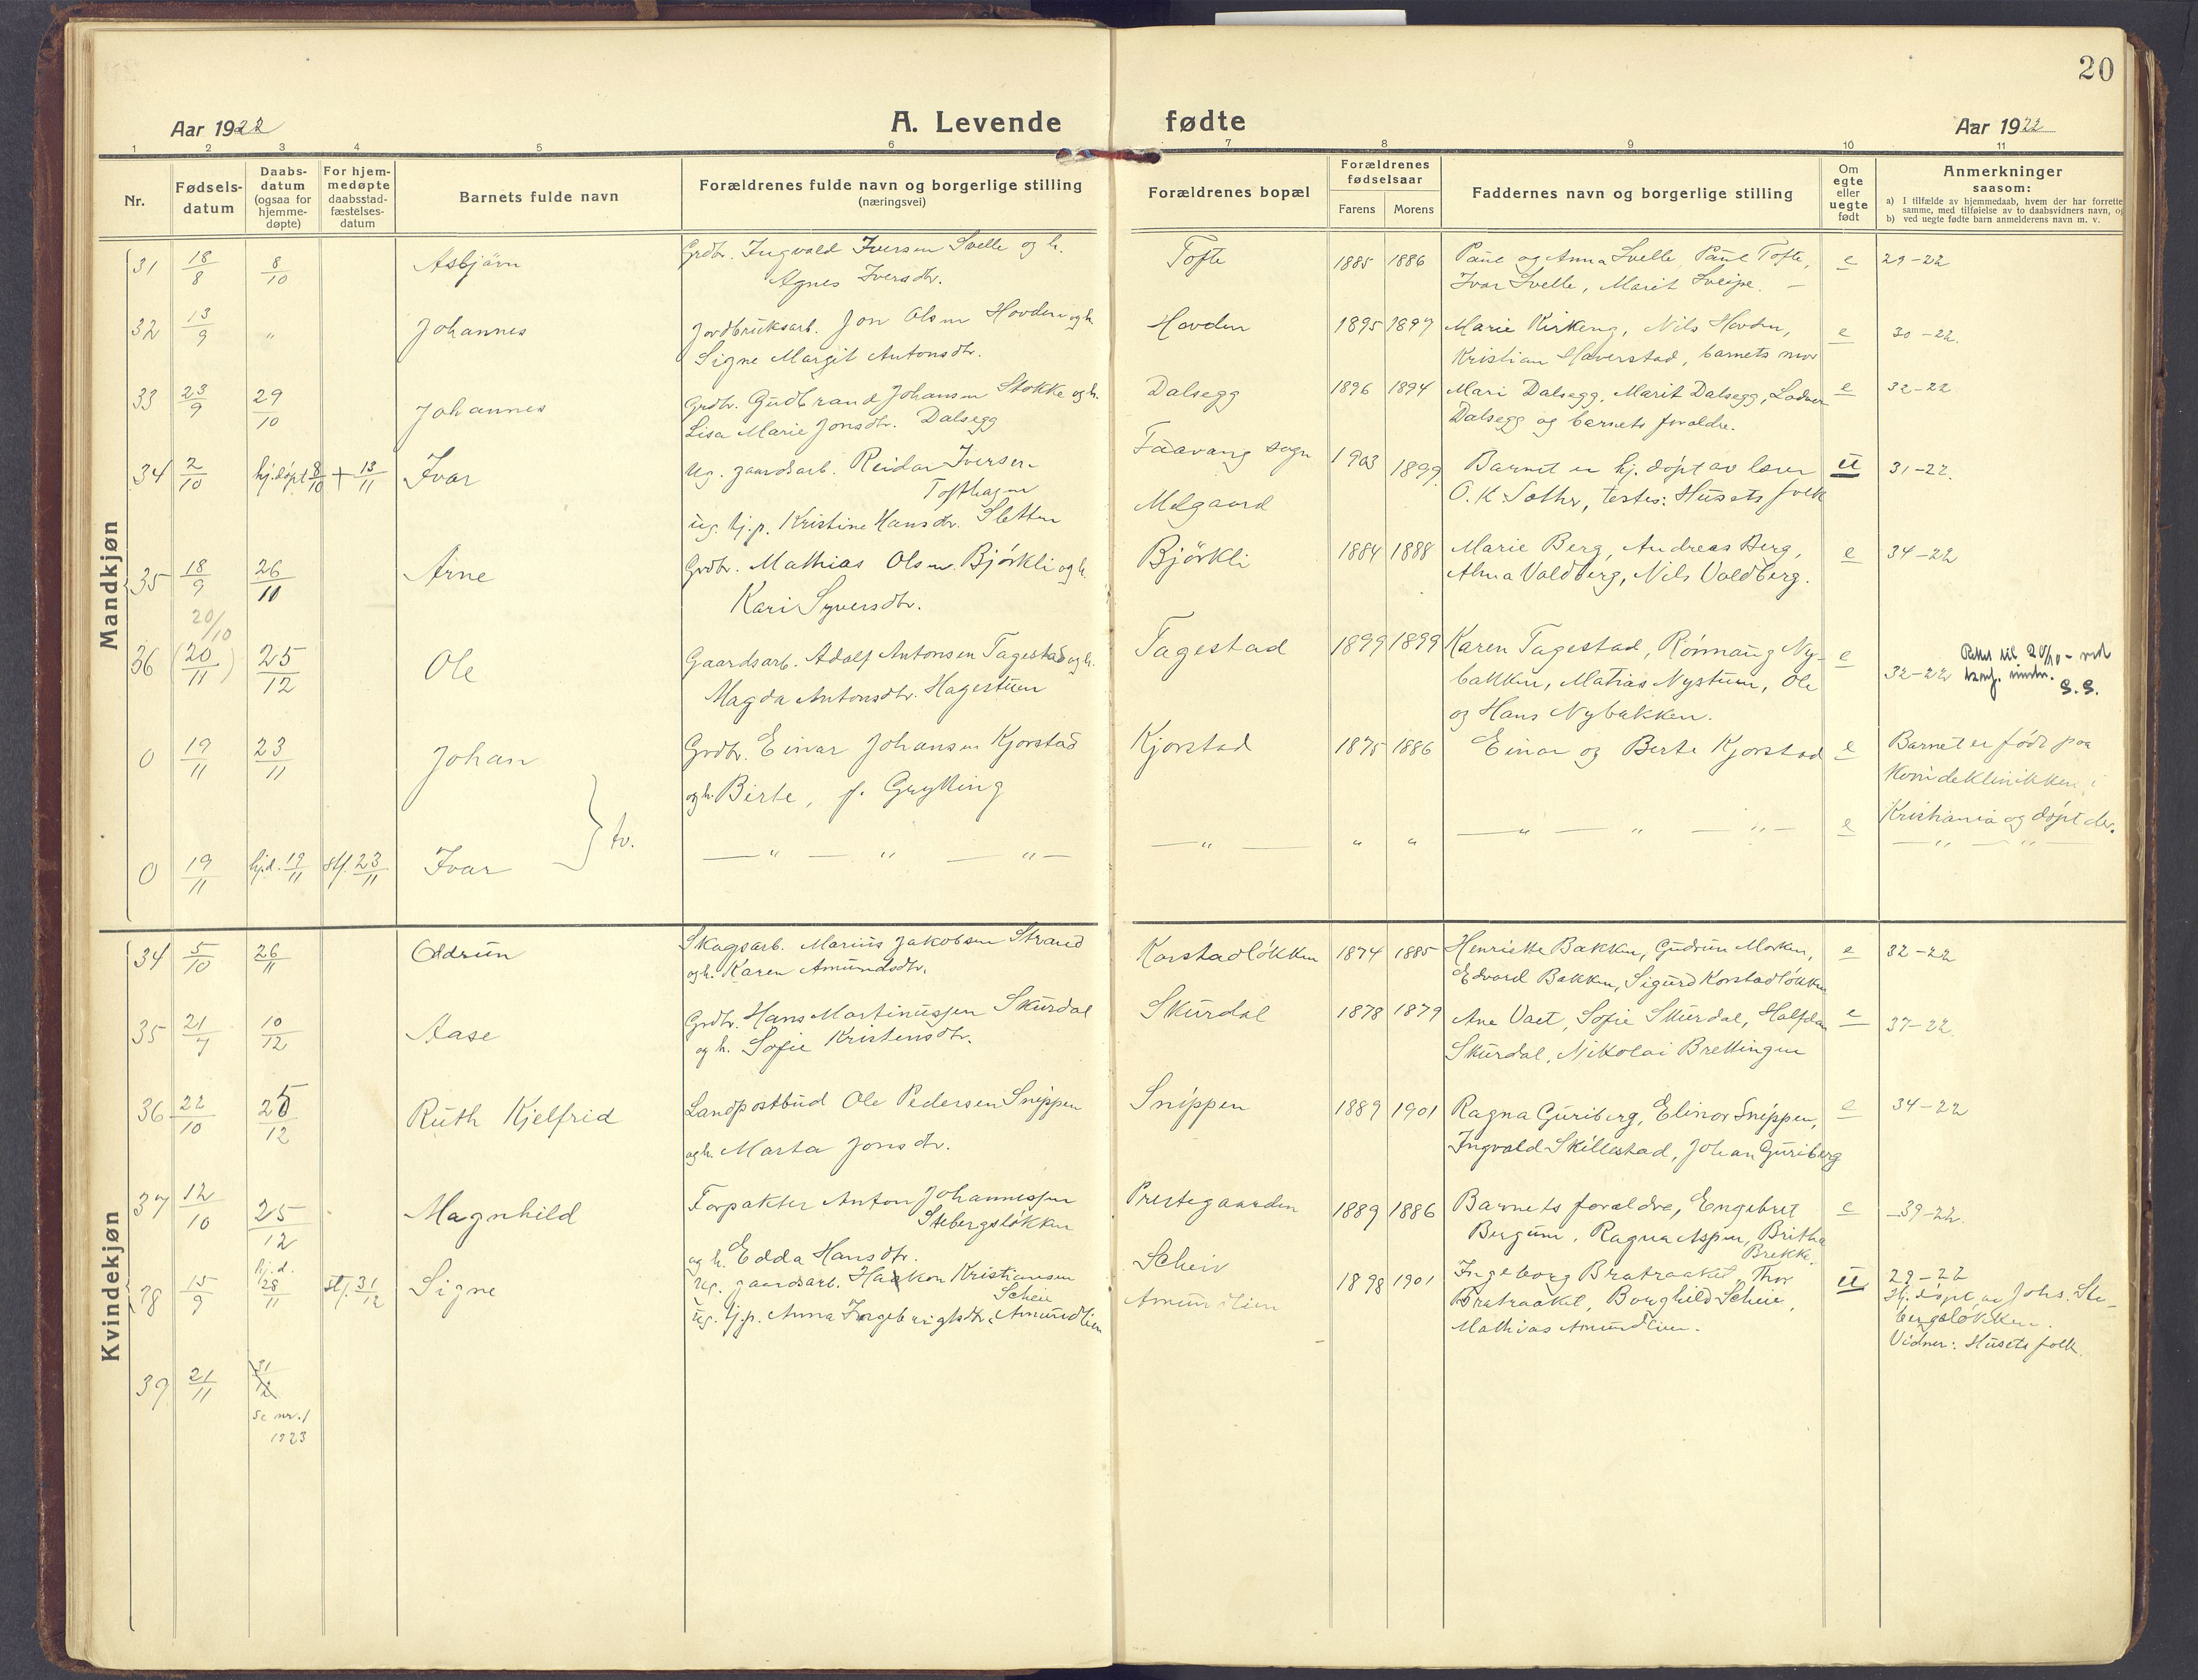 20
Aar 1922
A. Levende fødte
Aar 1922
1 2 3 4 5 6 7 8 9 10 11
Nr.
Fødsels-
datum
Daabs-
datum
(ogsaa for
hjemme-
døpte)
For hjem-
medøpte
daabsstad-
fæstelses-
datum
Barnets fulde navn
Forældrenes fulde navn og borgerlige stilling
(næringsvei)
Forældrenes bopæl
Forældrenes
fødselsaar
Farens Morens
Faddernes navn og borgerlige stilling
Om
egte
eller
uegte
født
Anmerkninger
saasom:
a) I tilfælde av hjemmedaab, hvem der har forrettet
samme, med tilføielse av to daabsvidners navn, og
b) ved uegte fødte barn anmelderens navn m. v.
Mandkjøn
31 18/8 8/10 Asbjørn
Grdbr. Ingvald Iversen Svelle og h.
Agnes Iversdtr.
Tofte 1885 1886
Paul og Anna Svelle, Paul Tofte,
Ivar Svelle, Marit Sveipe. –
e 29-22
32 13/9 " Johannes
Jordbruksarb. Jon Olsen Hovden og h.
Signe Margit Antonsdtr.
Hovden 1895 1897
Marie Kirkeng, Nils Hovden,
Kristian Haverstad, barnets mor
e 30-22.
33 23/9 29/10 Johannes
Grdbr. Gudbrand Johansen Stokke og h.
Lisa Marie Jonsdtr. Dalsegg
Dalsegg 1896 1894
Mari Dalsegg, Marit Dalsegg, Lodver
Dalsegg og barnets forældre.
e 32-22
34 2/10 hj.døpt 8/10 + 13/11 Ivar
Ug. gaardsarb. Reidar Iversen
Tofthagen
ug. tj.p. Kristine Hansdtr. Sletten
Faavang sogn
Melgaard
1903 1899
Barnet er hj. døpt av lærer
O. K. Sothr, testes: Husets folk
u 31-22.
35 18/9 26/10 Arne
Grdbr. Mathias Olsen Bjørkli og h.
Kari Syversdtr.
Bjørkli 1884 1888
Marie Berg, Andreas Berg,
Alma Voldberg, Nils Voldberg.
e 34-22
20/10
36 (20/11) 25/12 Ole
Gaardsarb. Adolf Antonsen Tagestad og h.
Magda Antonsdtr. Hagestuen
Tagestad 1899 1899
Karen Tagestad, Rønnaug Ny-
bakken, Matias Nystuen, Ole
og Hans Nybakken.
e 32-22
Rettet til 20/10 - ved
konf. undr.
S. S.
0 19/11 23/11 Johan
Grdbr. Einar Johansen Kjorstad
og h. Birte, f. Gryting
Kjorstad 1875 1886
Einar og Berte Kjorstad
e Barnet er født paa
Kvindeklinikken i
Kristiania og døpt der.
} tv.
0 19/11 hj.d. 19/11 stf. 23/11 Ivar
— " — " — " —
— " — " "
— " — " — " —
e — " — " —
Kvindekjøn
34 5/10 26/11 Oddrun
Skogsarb. Marius Jakobsen Strand
og h. Karen Amundsdtr.
Korstadløkken 1874 1885
Henriette Bakken, Gudrun Morken,
Edvard Bakken, Sigurd Korstadløkken
e 32-22
35 21/7 10/12 Aase
Grdbr. Hans Martinussen Skurdal
og h. Sofie Kristensdtr.
Skurdal 1878 1879
Ane Vaet, Sofie Skurdal, Halfdan
Skurdal, Nikolai Brettingen
e 37-22
36 22/10 25/12 Ruth Kjelfrid
Landpostbud Ole Pedersen Snippen
og h. Marta Jonsdtr.
Snippen 1889 1901
Ragna Guriberg, Elinor Snippen,
Ingvald Skillestad, Johan Guriberg
e 34-22
37 12/10 25/12 Magnhild
Forpakter Anton Johannessen
Stebergsløkken
og h. Edda Hansdtr.
Prestegaarden 1889 1886
Barnets forældre, Engebret
Bergum, Ragna Aspen, Britha
Brekke.
e -39-22.
38 15/9 hj.d. 28/11 stf. 31/12 Signe
Ug. gaardsarb. Haakon Kristiansen
Scheie
ug. tj.p. Anna Ingebrigtsdtr. Amundlien
Scheie
Amundlien
1898 1901
Ingeborg Brataaket, Thor
Brataaket, Borghild Scheie,
Mathias Amundlien.
u 29-22
Hj. døpt av Johs. Ste-
bergsløkken.
Vidner: Husets folk.
39 21/11 31/12
Se nr. 1
1923